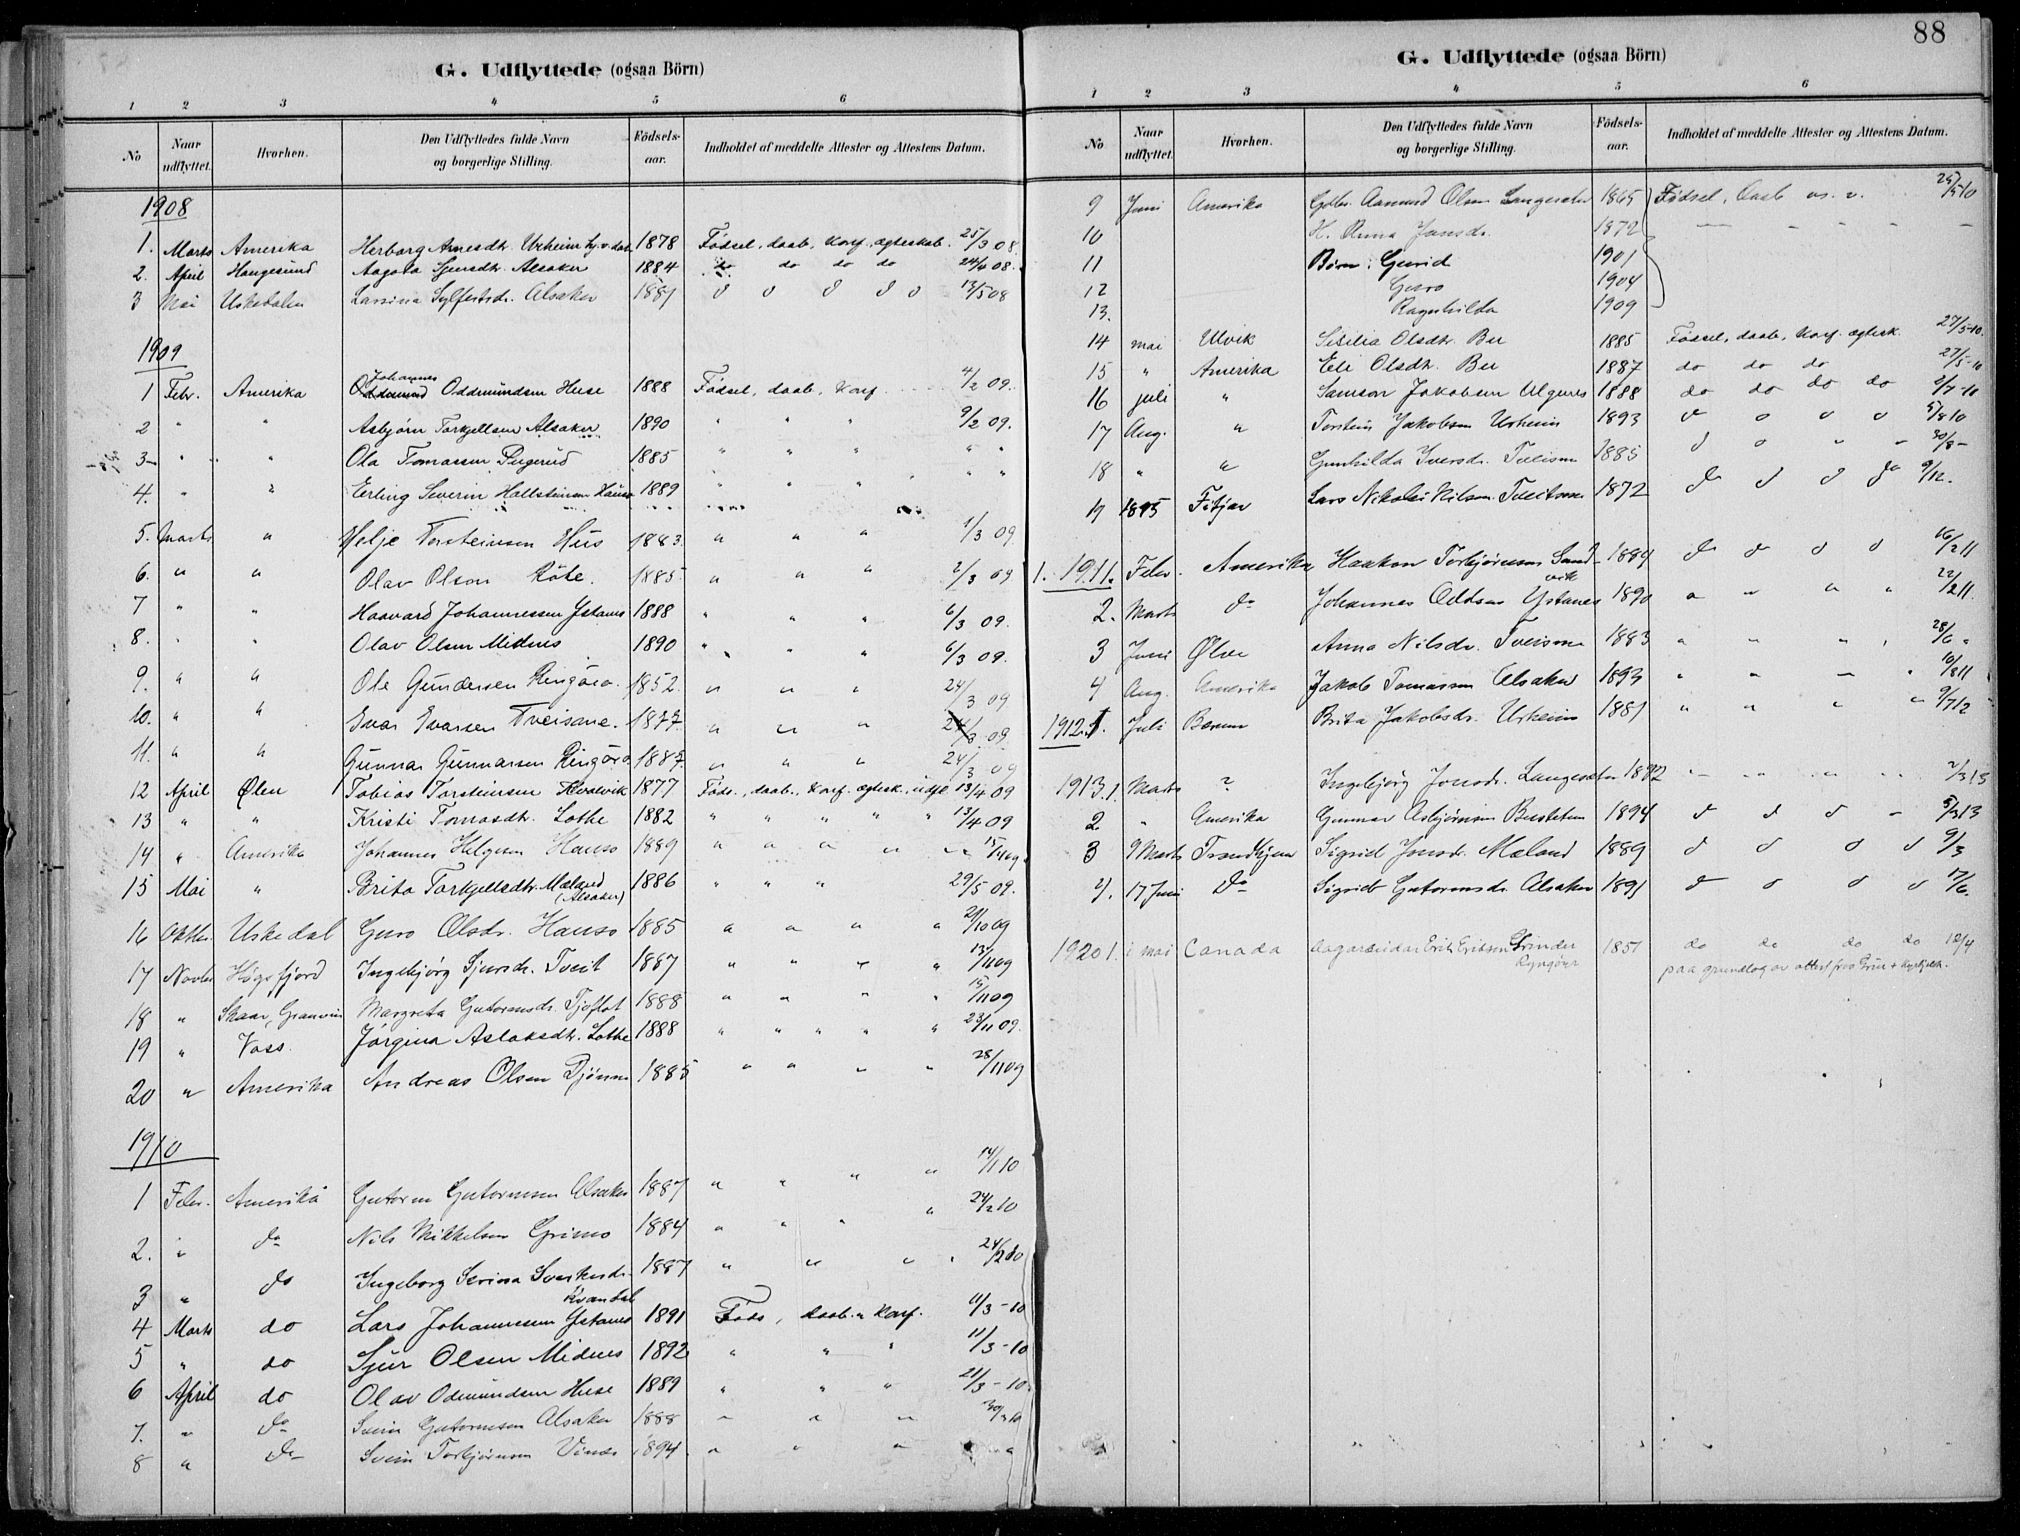 G. Udflyttede (ogsaa Börn)
1 2 3 4 5 6
No Naar udflyttet. Hvorhen. Den Udflyttedes fulde Navn og borgerlige Stilling. Födsels-aar. Indholdet af meddelte Attester og Attestens Datum.
1908
1. Marts Amerika Herborg Arnesdtr. Urheim 1878 Fødsel, daab, Konf. ægteskab. 25/3 08
2. April Haugesund Aagata Sjursdtr. Alsaker 1884 do do do do 24/4 08.
3 Mai Uskedalen Larsina Sylfestsdr. Alsaker 1881 d o d d o 13/5 08
1909
1 Febr. Amerika Johannes Oddmundsen Huse 1888 Fødsel, daab, Konf. 4/2 09.
2 " " Asbjørn Torkjellsen Alsaker 1890 " " " 9/2 09.
3 " " Ola Tomassen 1885 " " " " "
4. " " Erling Severin Hallsteinsen Hauso 1889 " " " " "
5. Marts " Helje Torsteinsen Hus 1883. " " " 1/3 09
6. " " Olav Olson Kote. 1885 " " " 2/3 09
7 " " Haavard Johannessen Ystanes 1888 " " " 6/3 09.
8. " " Olav Olsen Midnes 1890 " " " 6/3 09.
9. " " Ole Gundersen Ringøro. 1852. " " " 24/3 09
10. " " Ivar Ivarsen Tveisme. 1877. " " " 24/3 09.
11. " " Gunnar Gunnarsen Ringøro 1887. " " " 24/3 09
12 April Ølen Tobias Torsteinsen 1877 Føds., daab., Konf. ægtesk., udfl 13/4 09
13 " " Kristi Tomasdtr. Lothe 1882 " " " " " 13/4 09
14 " Amerika Johannes Helgesen Hauso 1889 " " " " " 15/4 09
15 Mai " Brita Torkjellsdtr. Mæland (Alsaker) 1886 " " " 29/5 09.
16 Oktbr. Uskedal Guro Olsdr. Hauso 1885 " " " " 21/10 09
17 Novbr Høgsfjord Ingebjørg Sjursdr. Tveit 1887 " " " " 13/11 09
18 " Skaar, Granvin Margreta Gutormsdr. Tjoflot 1888 " " " " 15/11 09
19 " Voss. Jørgina Aslaksdtr. Lothe 1888 " " " " " 23/11 09.
20 " Amerika Andreas Olsen Djønne 1885 " " " " 28/11 09
1910
1 Febr. Amerika Gutorm Gutormsen Alsaker 1887 " " " " 14/1 10
2. " do Nils Mikkelsen Grimo 1884 " " " " 24/2 10
3 " do Ingeborg Serina Sverkesdr. Kvandal 1887 " " " " 24/2 10
4 Marts do Lars Johannessen Ystanes 1891 Føds, daab. " Konf. 11/3-10
5 " do Sjur Olsen Midnes 1892 " " " 11/3-10
6 April do Olav Odmundsen Huse 1889 " " " 21/3-10.
7. " do Svein Gutormsen Alsaker 1888 " " " 30/3 10
8 " do Svein Torbjørnsen Vines 1894 " " "
88
G. Udflyttede (ogsaa Börn)
1 2 3 4 5 6
No Naar udflyttet. Hvorhen. Den Udflyttedes fulde Navn og borgerlige Stilling. Födsels-aar. Indholdet af meddelte Attester og Attestens Datum.
9 Juni Amerika Gbr. Aamund Olsen Langesæter 1865 Fødsel, Daab os. v. 25/5 10
10 H. Anna Jonsdr. 1872
11 Børn: Gurid 1901
12 Guro 1904
13. Ragnhilda 1909
14 mai Ulvik Sisilia Olsdtr. Bu 1885 Fødsel, daab, Konf. ægtesk. 27/5-10.
15 " Amerika Eli Olsdtr. Bu 1887 do do do 27/5-10
16 juli " Samson Jakobsen Algenes 1888 do do do do 2/7-10
17 Aug. " Torstein Jakobsen Urheim 1893 d o o o 5/8 10
18 " " Gunhilda Iversdr. Tveisme 1885 d o " " 30/8-
19 1895 Fitjar Lars Nikolai Nilsen Tveitnes 1872 do d d do 9/12.
1. 1911. Febr. Amerika Haakon Torbjørnsen Sandvik 1884 do d d d 16/2 11
2. Marts do Johannes Oddsen Ystanes 1890 " " " " 22/2 11.
3 Juni Ølve Anna Nilsdr. Tveisme 1883 " " " " 28/6 "
4 Aug. Amerika Jakob Tomassen Alsaker 1893 " " " " 10/8 11
1912. 1. Juli Brita Jakobsdr. Urheim 1881 " " " " 9/7 12
1913. 1. Marts ? Ingebjørg Jonsdr. Langesæter 1882 " " " " 2/3 13
2 " Amerika Gunnar Asbjørnsen Bustetun 1894 d d d " 5/3 13
3 9 Marts Trondhjem Sigrid Jonsdr. Mæland 1889 d o o d 9/3
4. 17 Juni do Sigrid Gutormsdr. Alsaker 1891 d o o o 17/6.
1920 1. i mai Canada dagarbeidar Erik Eriksen Grinder Ryngöyr 1851 do do do do 12/4
paa grundlag av attest fraa